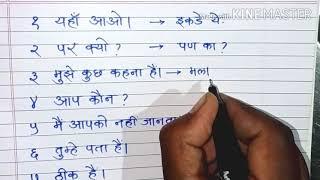 Made with KINEMASTER
१ यहाँ आओ। → इकडे ये
२ पर क्यो? → पण का?
३ मुझे कुछ कहना है। → मला
४ आप कौन?
५ मै आपको नही जानत
६ तुम्हे पता है।
७ ठीक है।